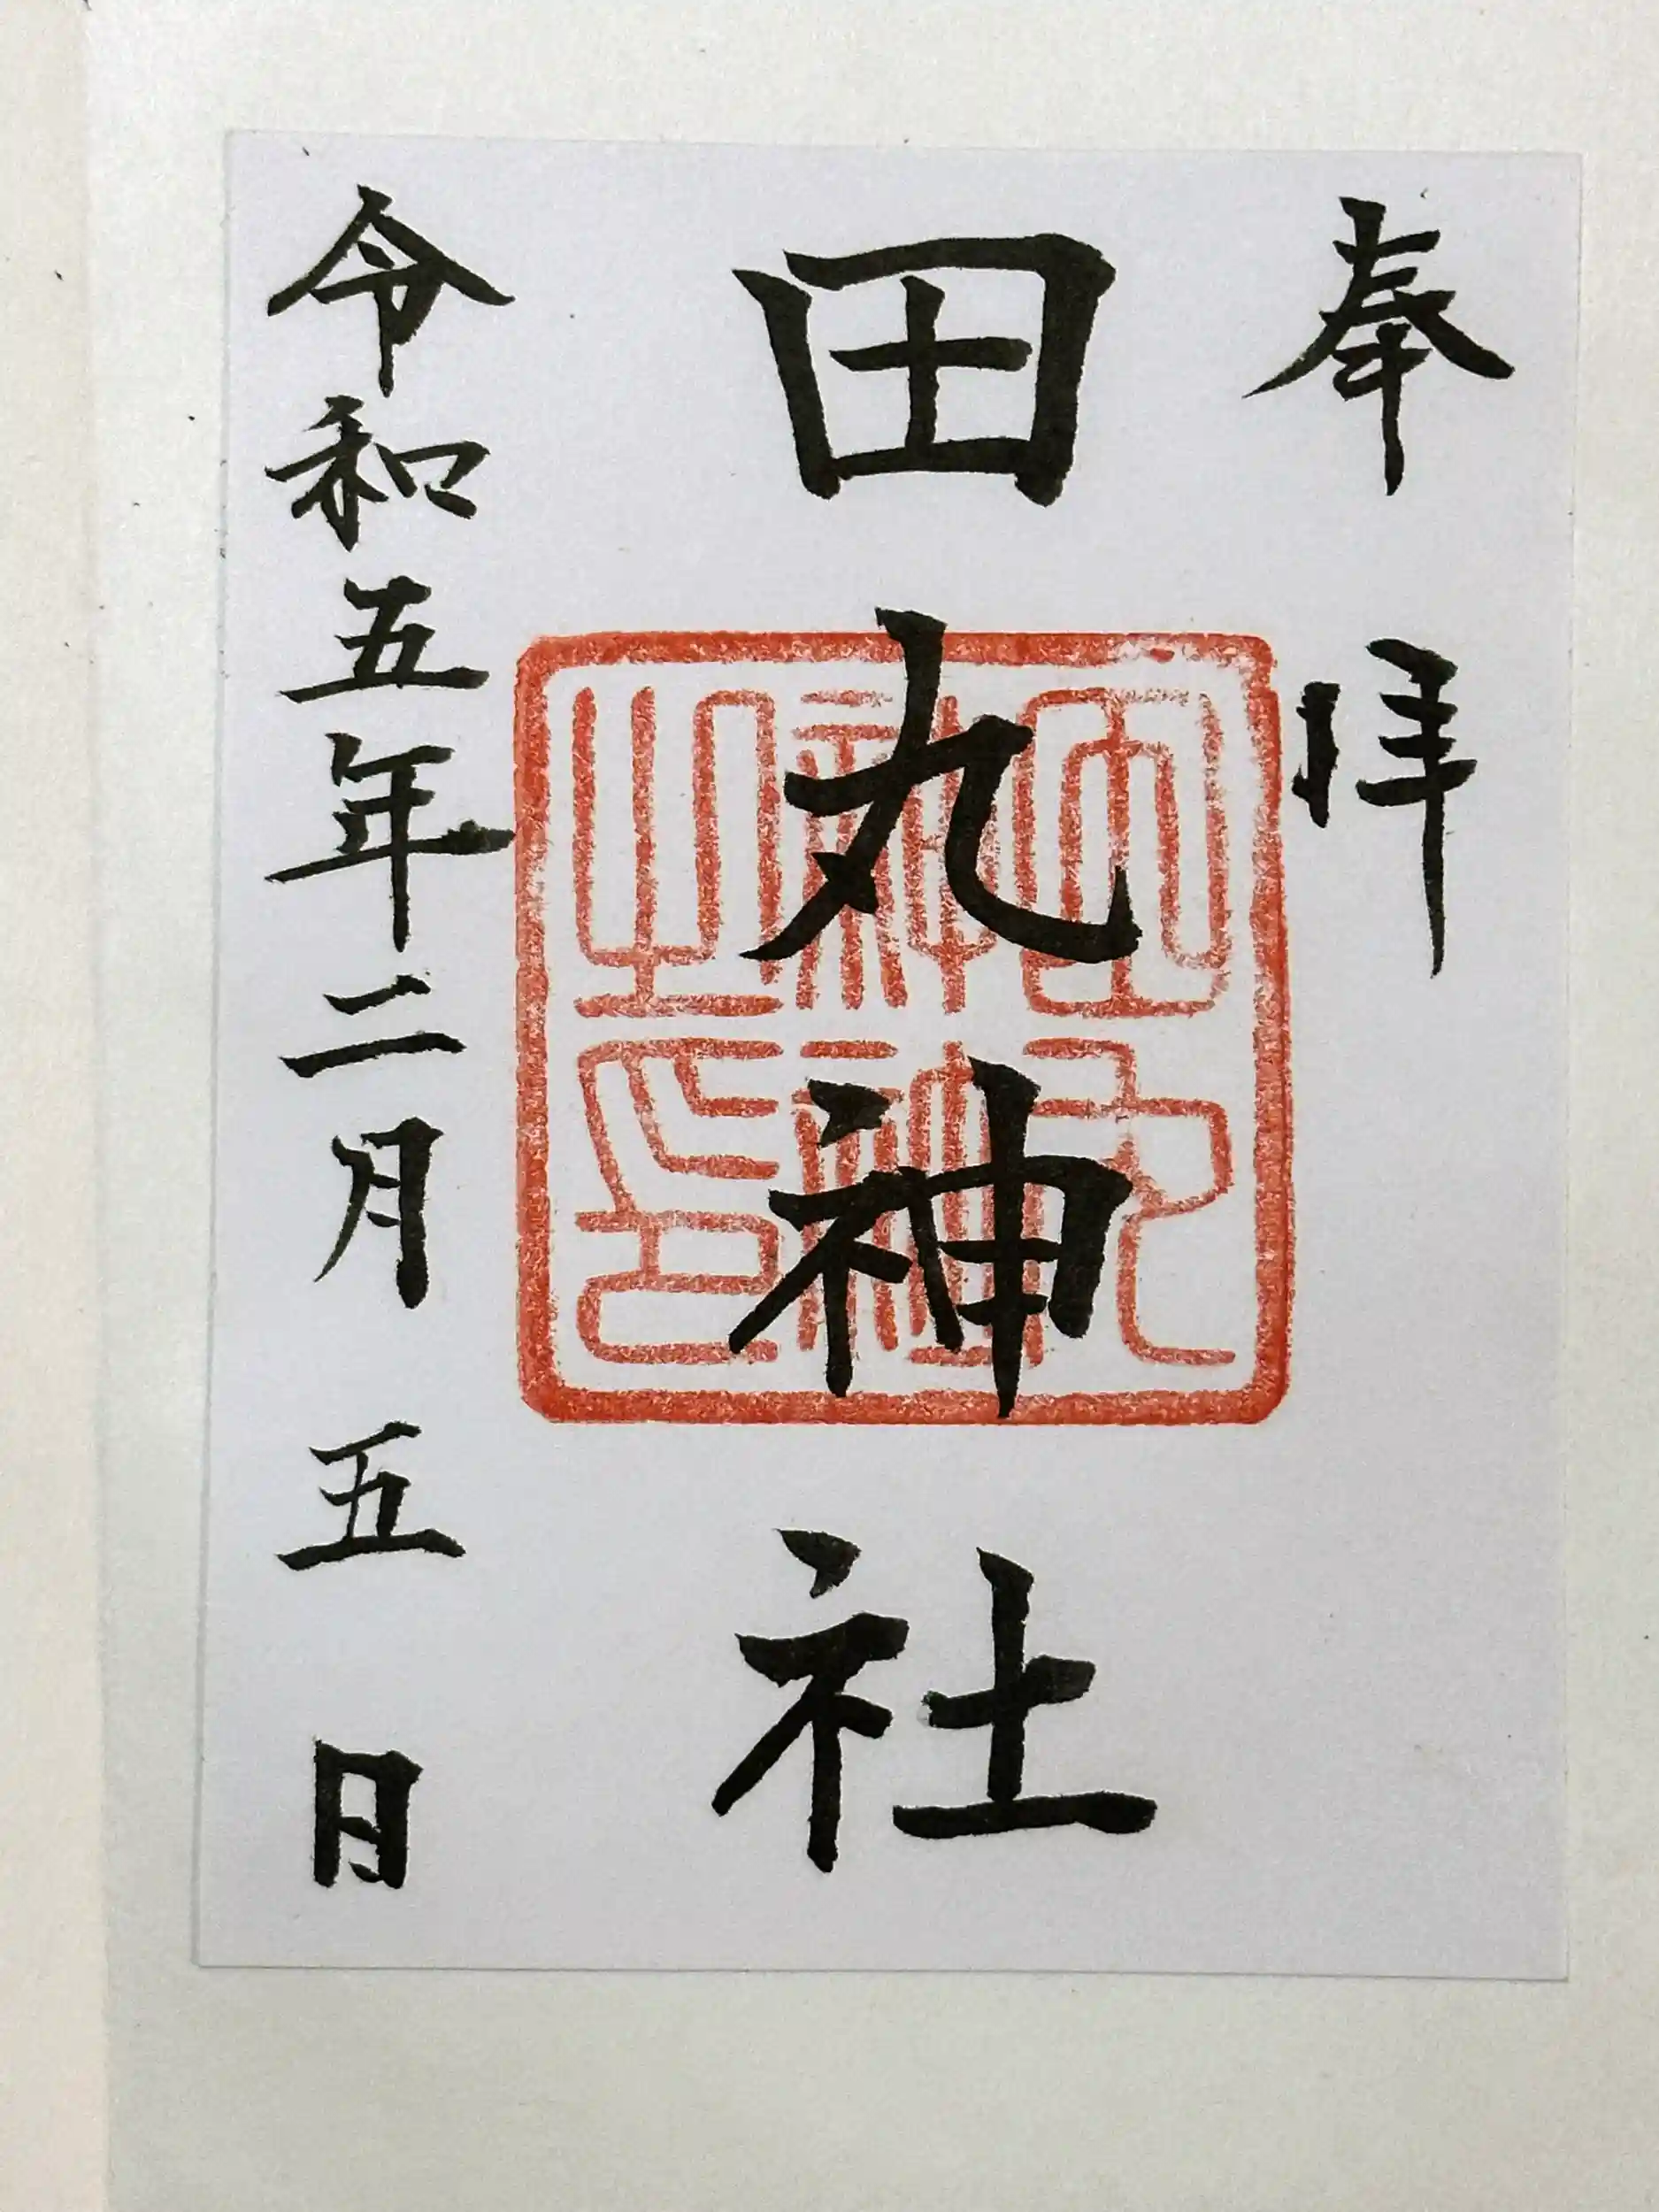 奉拝
田丸神社
令和五年二月五日